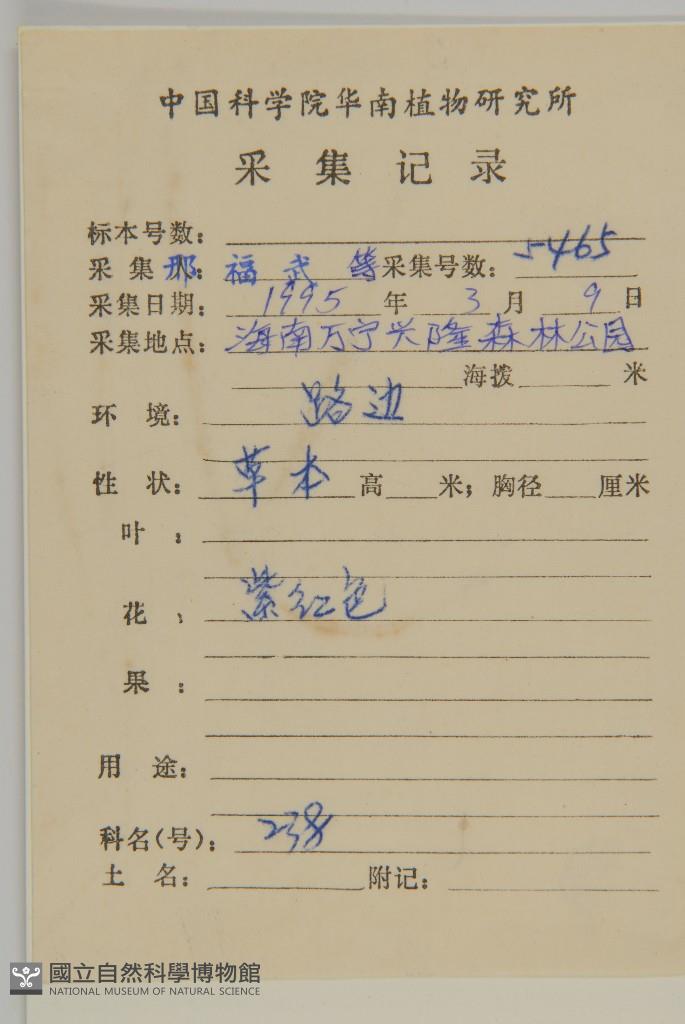 中国科学院华南植物研究所
采集记录
标本号数：
采集人：邢福武等采集号数：5465
采集日期：1995年3月9日
采集地点：海南万宁兴隆森林公园
海拨 米
环境：路边
性状：草本高 米；胸径 厘米
叶：
花：紫红色
果：
用途：
科名(号)：238
土名： 附记：
國立自然科學博物館
NATIONAL MUSEUM OF NATURAL SCIENCE